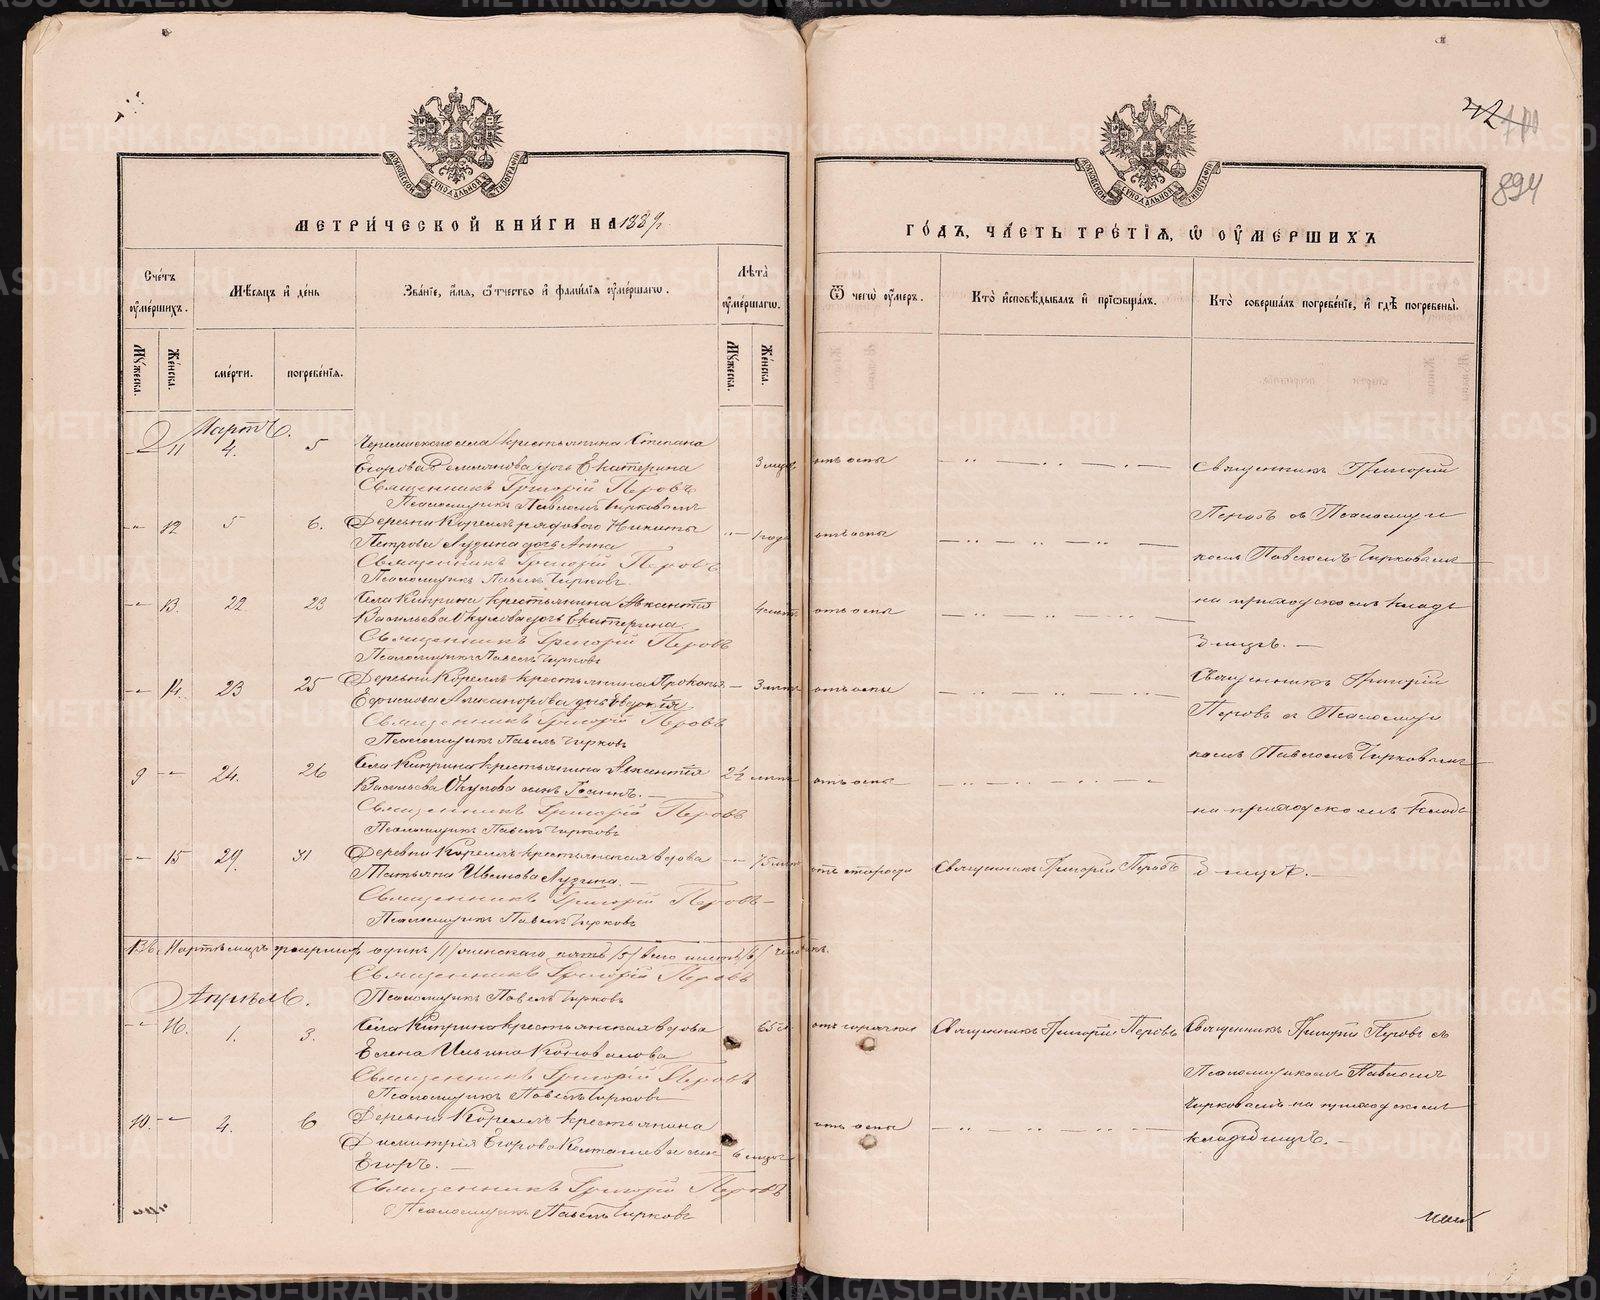 МЕТРИЧЕСКОЙ КНИГИ НА 1889
ГОДЪ, ЧАСТЬ ТРЕТІЯ, Ѿ ОУМЕРШИХЪ
894
Счетъ оумершихъ.
Мѣсяцъ и день
Званіе, имя, ѿчество и фамилія оумершагѡ.
Лѣта оумершагѡ.
Ѿ чегѡ оумеръ.
Кто исповѣдывалъ и пріѡбщалъ.
Кто совершалъ погребеніе, и гдѣ погребены.
Мужеска.
Женска.
смерти.
погребенія.
Мужеска.
Женска.
Мартъ.
11 4. 5 крестьянина Степана
Егорова дочь Екатерина 3 отъ оспы
Священникъ Григорій Перовъ
Псаломщикъ Павелъ Чирковъ
12 5 6. Деревни рядового Никиты
Петрова Лузина дочь Анна 1 годъ отъ оспы
Священникъ Григорій Перовъ
Псаломщикъ Павелъ Чирковъ
13. 22. 23 Села Киприна крестьянина Авксентія
Васильева Окулова дочь Екатерина 4 лѣтъ отъ оспы
Священникъ Григорій Перовъ
Псаломщикъ Павелъ Чирковъ
14. 23 25 Деревни крестьянина
Александрова дочь 3 отъ оспы
Священникъ Григорій Перовъ
Псаломщикъ Павелъ Чирковъ
9 24. 26 Села Киприна крестьянина Авксентія 2½ отъ оспы
Васильева Окулова сынъ
Священникъ Григорій Перовъ
Псаломщикъ Павелъ Чирковъ
15 29. 31 Деревни крестьянская вдова 75 отъ старости Священникъ Григорій Перовъ
Татьяна Иванова Лузина.
Священникъ Григорій Перовъ
Псаломщикъ Павелъ Чирковъ
Священникъ Григорій
Перовъ съ Псаломщи
комъ Павломъ Чирковымъ
на приходскомъ клад
бищѣ.
Священникъ Григорій
Перовъ съ Псаломщи
комъ Павломъ Чирковымъ
на приходскомъ клад
бищѣ.
Въ Мартѣ мѣсяцѣ мужеска одинъ /1/ женскаго пять /5/ всего шесть /6/ человѣкъ.
Священникъ Григорій Перовъ
Псаломщикъ Павелъ Чирковъ
Апрѣль.
16. 1. 3. Села Киприна крестьянская вдова 65 отъ горячки Священникъ Григорій Перовъ
Елена Ильина Коновалова
Священникъ Григорій Перовъ
Псаломщикъ Павелъ Чирковъ
Священникъ Григорій Перовъ съ
Псаломщикомъ Павломъ
Чирковымъ на приходскомъ
кладбищѣ.
10. 4. 6 Деревни крестьянина отъ оспы
Димитрія Егорова сынъ 6
Егоръ.
Священникъ Григорій Перовъ
Псаломщикъ Павелъ Чирковъ
METRIKI.GASO-URAL.RU